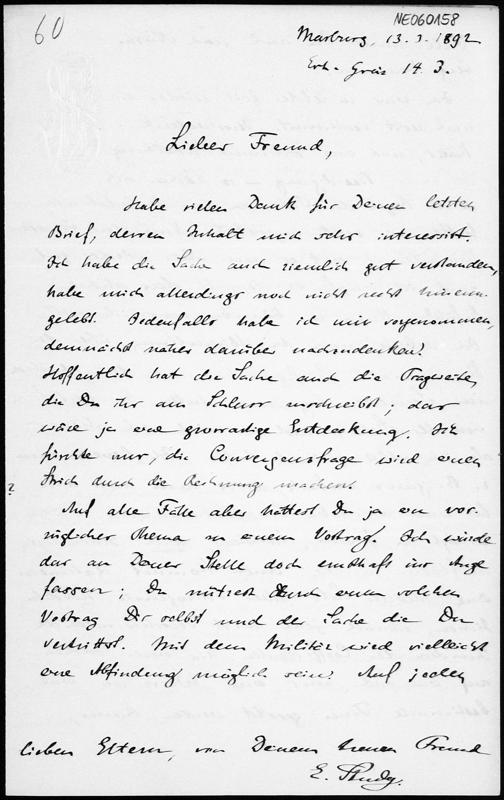 60
NE060158
Marburg, 13. 3. 1892
Erh. Greiz 14. 3.
Lieber Freund,
Habe vielen Dank für Deinen letzten
Brief, dessen Inhalt mich sehr interessirt.
Ich habe die Sache auch ziemlich gut verstanden,
habe mich allerdings noch nicht recht hinein-
gelebt. Jedenfalls habe ich mir vorgenommen,
demnächst näher darüber nachzudenken!
Hoffentlich hat die Sache auch die Tragweite,
die Du ihr am Schluss zuschreibst; das
wäre ja eine grossartige Entdeckung. Ich
fürchte nur, die Convergenzfrage wird einen
? Strich durch die Rechnung machen!
Auf alle Fälle aber hättest Du ja ein vor-
zügliches Thema zu einem Vortrag. Ich würde
das an Deiner Stelle doch ernsthaft ins Auge
fassen; Du nützest durch einen solchen
Vortrag Dir selbst und der Sache die Du
vertrittst. Mit dem Militär wird vielleicht
eine Abfindung möglich sein? Auf jeden
lieben Eltern, von Deinem treuen Freund
E. Study.